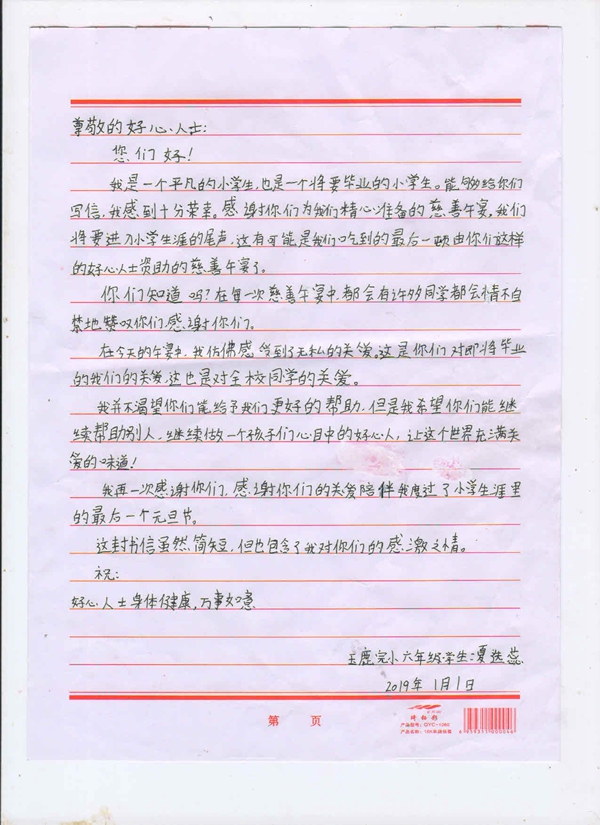 尊敬的好心人士:
您们好!
我是一个平凡的小学生,也是一个将要毕业的小学生。能够给你们
写信,我感到十分荣幸。感谢你们为我们精心准备的慈善午宴,我们
将要进入小学生涯的尾声,这有可能是我们吃到的最后一顿由你们这样
的好心人士资助的慈善午宴了。
你们知道吗?在每一次慈善午宴中,都会有许多同学都会情不自
禁地赞叹你们,感谢你们。
在今天的午宴中,我仿佛感受到了无私的关爱。这是你们对即将毕业
的我们的关爱,这也是对全校同学的关爱。
我并不渴望你们能给予我们更好的帮助,但是我希望你们能继
续帮助别人,继续做一个孩子们心目中的好心人,让这个世界充满关
爱的味道!
我再一次感谢你们,感谢你们的关爱陪伴我度过了小学生涯里
的最后一个元旦节。
这封书信虽然简短,但也包含了我对你们的感激之情。
祝:
好心人士身体健康,万事如意
玉鹿完小六年级学生:夏 蕊
2019年 1月1日
第 页
产品型号:QYC-1080